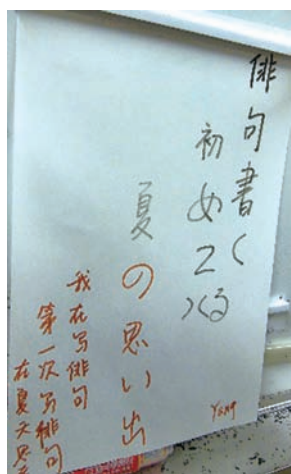 俳句書く
初めて
つくる
夏の思い出
YANG
我在写俳句
第一次写俳句
在夏天思